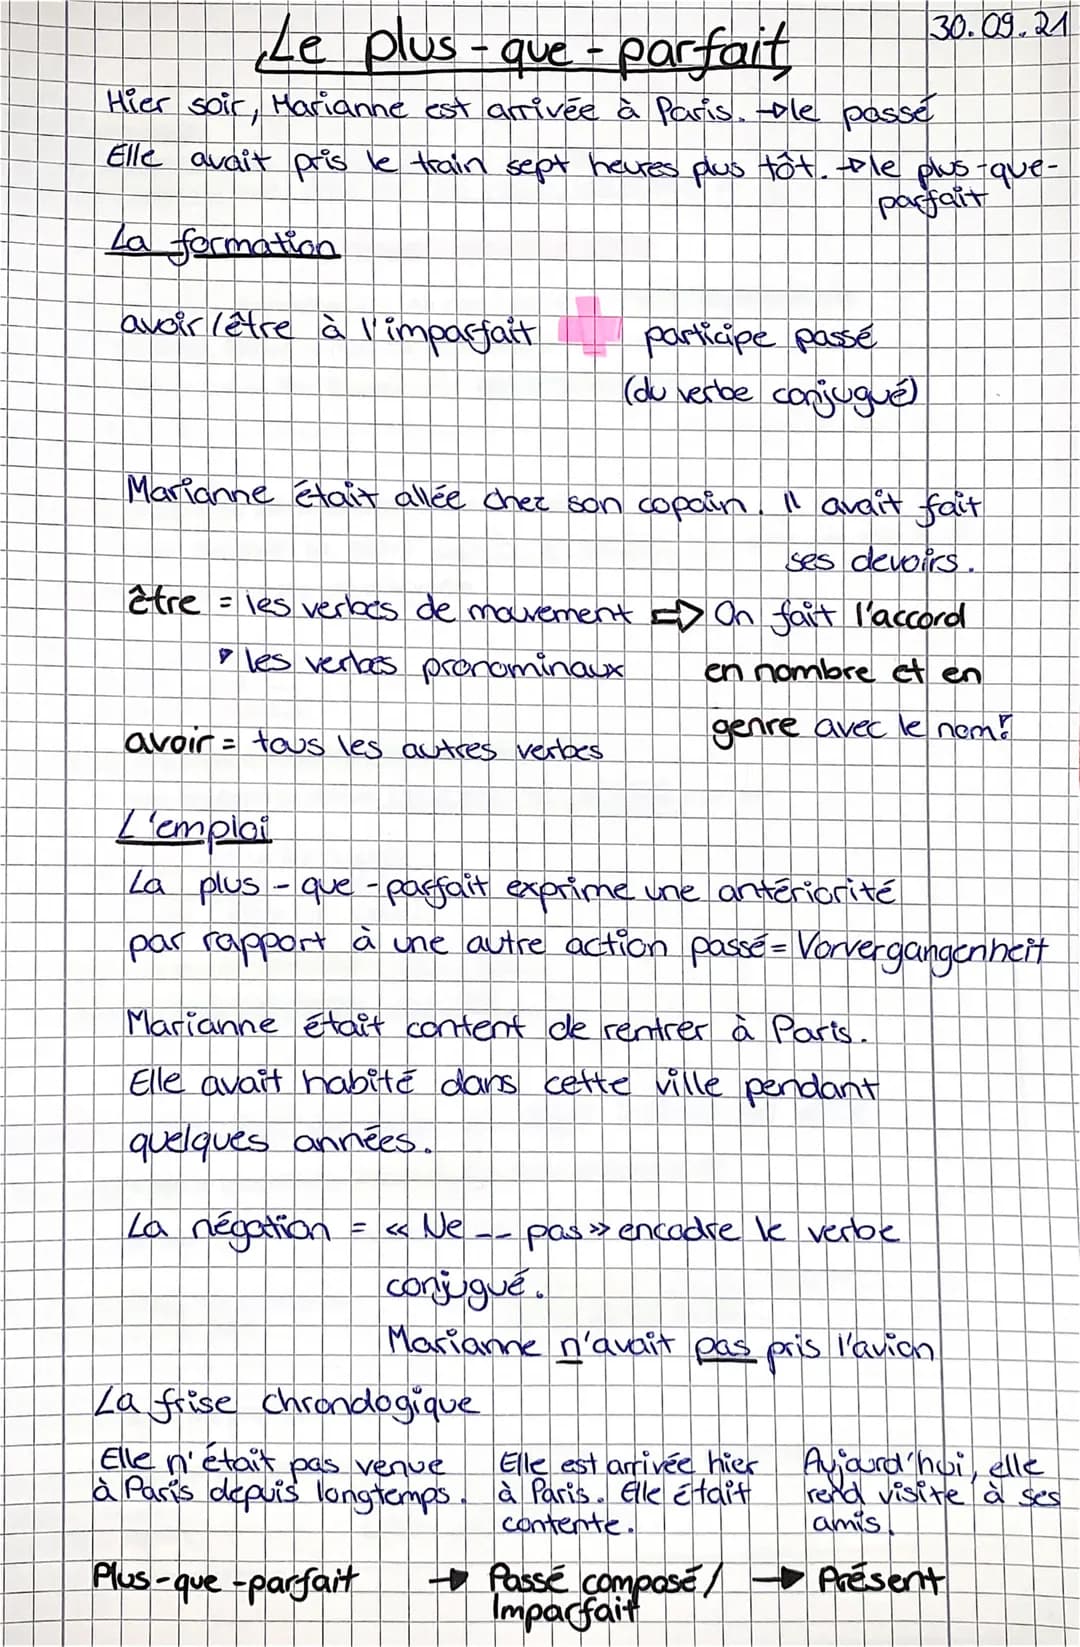 30.09.21
Le plus-que-parfait
Hier soir, Marianne est arrivée à Paris. → le passé
Elle avait pris le train sept heures plus tôt. → le plus-que-
parfait
La formation
avoir/être à l'imparfait + participe passé
(du verbe conjugué)
Marianne était allée chez son copain. Il avait fait
ses devoirs.
être = les verbes de mouvement ⇒ On fait l'accord
les verbes pronominaux en nombre et en
genre avec le nom!
avoir = tous les autres verbes
L'emploi
La plus-que-parfait exprime une antériorité
par rapport à une autre action passé = Vorvergangenheit
Marianne était content de rentrer à Paris.
Elle avait habité dans cette ville pendant
quelques années.
La négation = « Ne -- pas » encadre le verbe
conjugué.
Marianne n'avait pas pris l'avion
La frise chronologique
Elle n'était pas venue
à Paris depuis longtemps.
Elle est arrivée hier
à Paris. Elle était
contente.
Aujourd'hui, elle
rend visite à ses
amis.
Plus-que-parfait → Passé composé/ → Présent
Imparfait